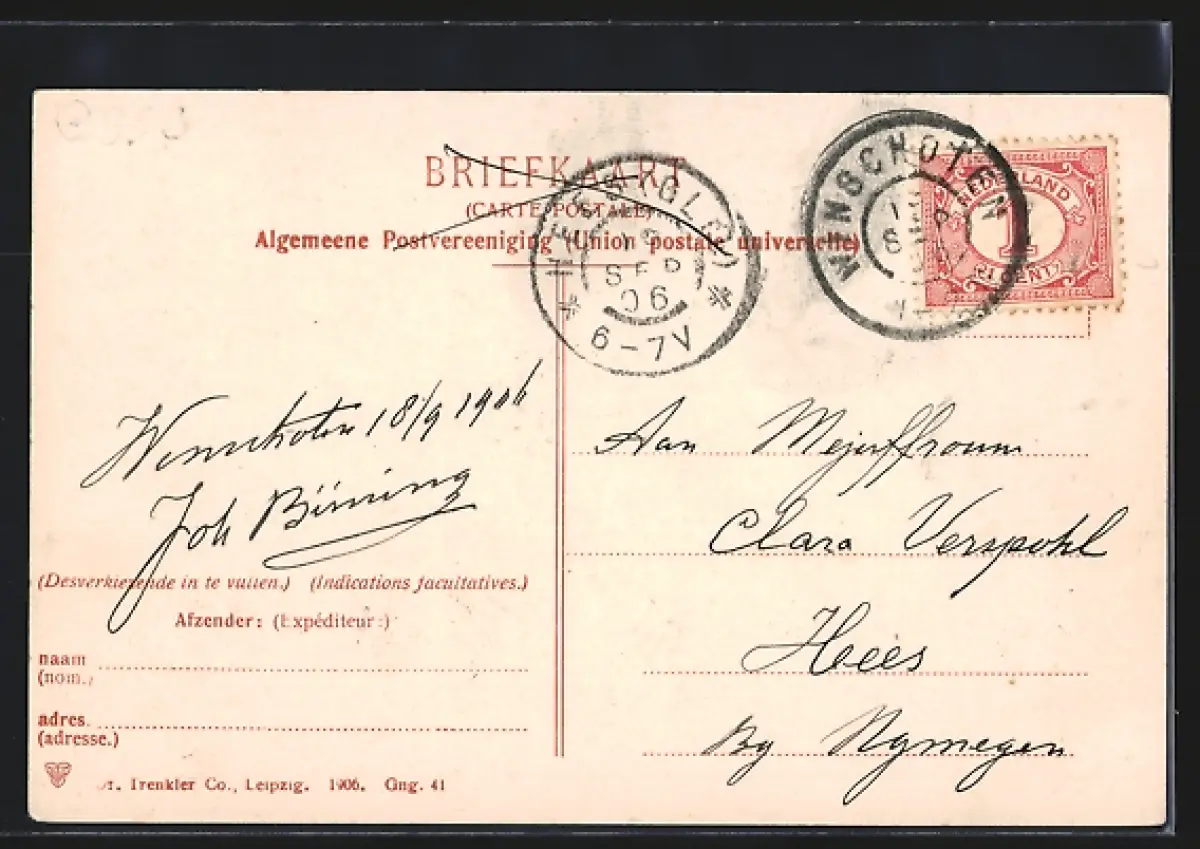 BRIEFKAART
(CARTE POSTALE)
Algemeene Postvereeniging (Union postale universelle)
HEES (GLD)
SEP
06
6-7V
WINSCHOTEN
NEDERLAND
1
(1 CENT)
Winschoten 18/9 1906
Joh Büning
Aan Mejuffrouw
Clara Verspohl
Hees
By Nymegen
(Desverkiezende in te vullen.) (Indications facultatives.)
Afzender: (Expéditeur:)
naam
(nom.)
adres.
(adresse.)
Dr. Trenkler Co., Leipzig. 1906. Gng. 41